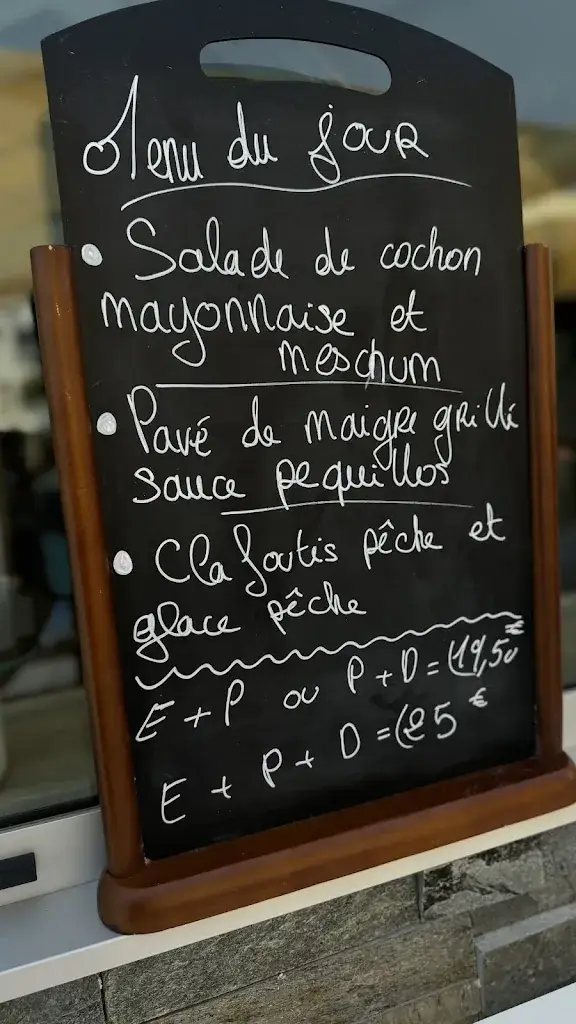 Menu du jour
• Salade de cochon
mayonnaise et
meschum
• Pavé de maigre grillé
sauce pequillos
• Clafoutis pêche et
glace pêche
E + P ou P + D = 19,50€
E + P + D = 25€